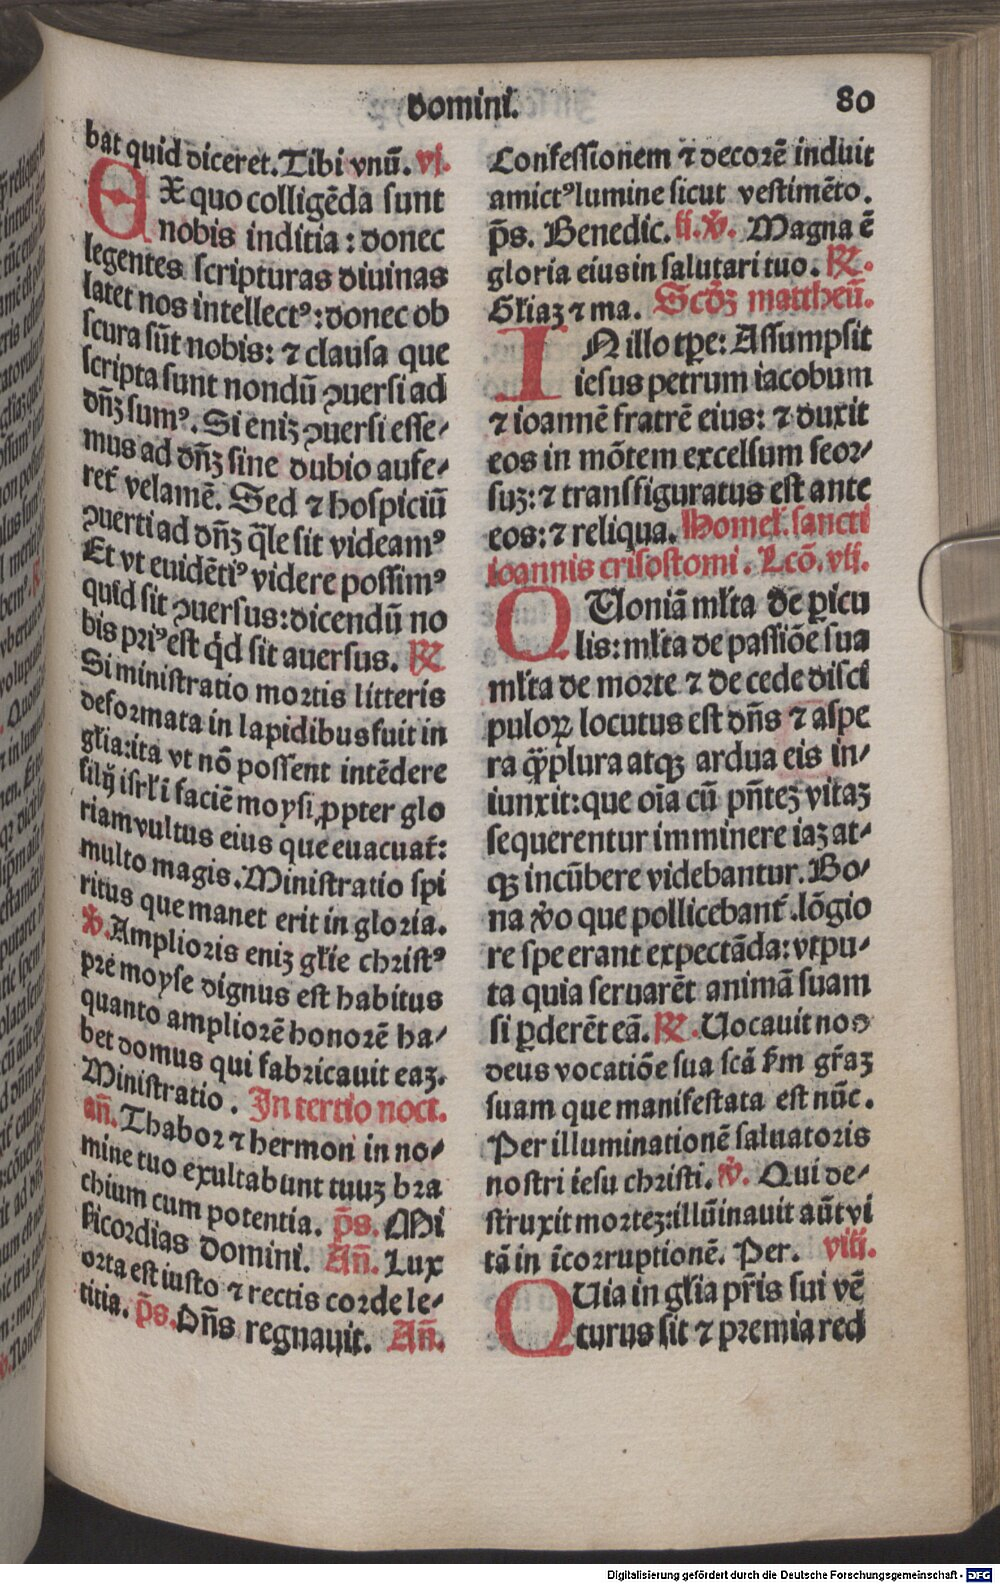 domini.
80
bat quid diceret. Tibi vnū. vj.
EX quo colligēda sunt
nobis inditia : donec
legentes scripturas diuinas
latet nos intellectꝰ: donec ob
scura sūt nobis: ⁊ clausa que
scripta sunt nondū ꝯuersi ad
dn̄ꝫ sumꝰ. Si eniꝫ ꝯuersi esse⸗
mus ad dn̄ꝫ sine dubio aufe⸗
ret᷑ velamē. Sed ⁊ hospiciū
ꝯuerti ad dn̄ꝫ q̄le sit videamꝰ
Et vt euidētiꝰ videre possimꝰ
quid sit ꝯuersus: dicendū no
bis priꝰ est q̇d sit auersus. ℟
Si ministratio mortis litteris
deformata in lapidibus fuit in
gl̄ia: ita vt nō possent intēdere
filij isrl̄ i faciē moysi ꝓpter glo
riam vultus eius que euacuat᷑:
multo magis. Ministratio spi
ritus que manet erit in gloria.
℣. Amplioris eniꝫ gl̄ie christꝰ
pre moyse dignus est habitus
quanto ampliorē honorē ha⸗
bet domus qui fabricauit eaꝫ.
Ministratio. In tertio noct.
an̄. Thabor ⁊ hermon in no⸗
mine tuo exultabunt tuuꝫ bra
chium cum potentia. p̄s. Mi
sicordias domini. An̄. Lux
orta est iusto ⁊ rectis corde le⸗
titia. p̄s. Dn̄s regnauit. An̄.
Confessionem ⁊ decorē induit
amictꝰ lumine sicut vestimēto.
p̄s. Benedic. ij. ℣. Magna ē
gloria eius in salutari tuo. ℟.
Gl̄iaꝫ ⁊ ma. Scd̄ꝫ mattheū.
IN illo tꝑe: Assumpsit
iesus petrum iacobum
⁊ ioannē fratrē eius: ⁊ duxit
eos in mōtem excelsum seor⸗
suꝫ: ⁊ transfiguratus est ante
eos: ⁊ reliqua. Homel̄. sancti
ioannis crisostomi. Lcō. vij.
QUoniā ml̄ta de ꝑicu
lis: ml̄ta de passiōe sua
ml̄ta de morte ⁊ de cede disci
puloꝝ locutus est dn̄s ⁊ aspe
ra qꝫplura atqꝫ ardua eis in⸗
iunxit: que oīa cū pn̄teꝫ vitaꝫ
sequerentur imminere iaꝫ at⸗
qꝫ incūbere videbantur. Bo⸗
na ꝟo que pollicebant᷑. lōgio
re spe erant expectāda: vtpu⸗
ta quia seruarēt animā suam
si ꝑderēt eā. ℟. Uocauit nos
deus vocatiōe sua scā ẜm gr̄aꝫ
suam que manifestata est nūc.
Per illuminationē saluatoris
nostri iesu christi. ℣. Qui de⸗
struxit morteꝫ: illūinauit aūt vi
tā in īcorruptionē. Per. viij.
QUia in gl̄ia pr̄is sui vē
turus sit ⁊ premia red
Digitalisierung gefördert durch die Deutsche Forschungsgemeinschaft - DFG